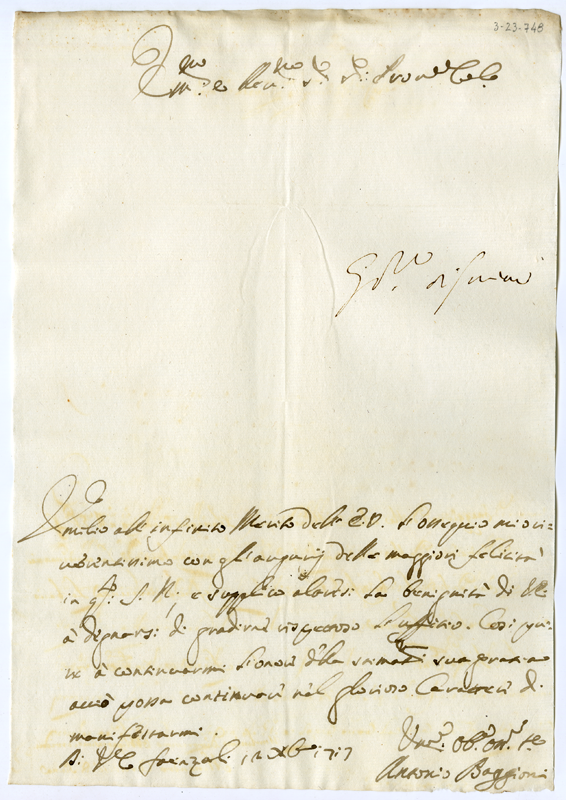 3-23-748
Em.mo e Rev.mo S.r S.r Pron.e Col.mo
Umilio all' infinito Merito dell' E.V. l'ossequio mio ri-
verentissimo con gl' augurij delle maggiori felicità
in q.te S. N., e supplico altresì la benignità di V.E.
à degnarsi di gradire rispettoso l'uffitio. Così pu-
re à continuarmi l'onore della stimatma sua grazia
acciò possa continuare nel glorioso Carattere di
manifestarmi.
Di V.E. Faenza li 12 Xbre 1717
Um.o Ob.o On.r Se
Antonio Baggioni